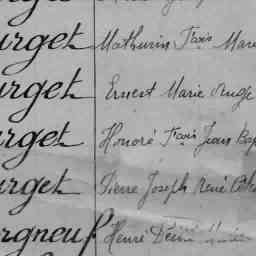 urget Mathurin Frçois Marie
urget Ernest Marie Ange
urget Honoré Frçois Jean Bap
urget Pierre Joseph René
rgneuf Henri Désiré Marie